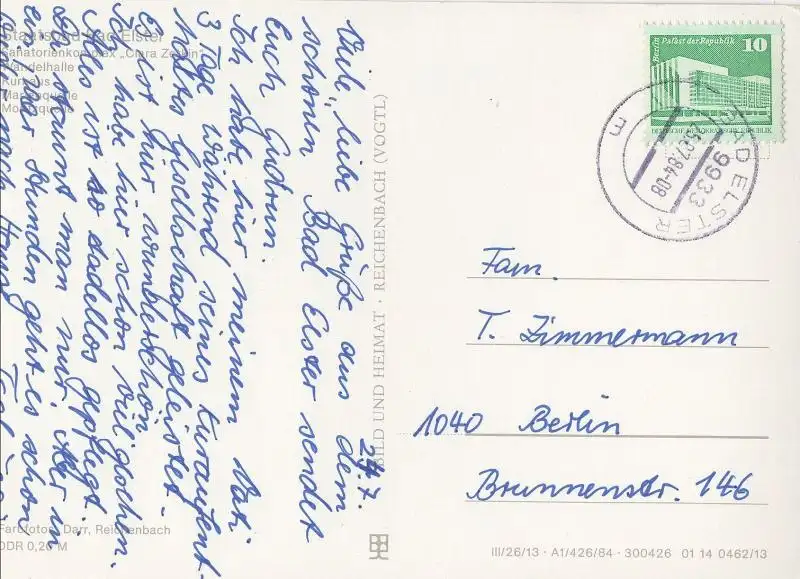 Staatsbad Bad Elster
Sanatorienkomplex „Clara Zetkin"
Wandelhalle
Kurhaus
Marienquelle
Moritzquelle
27.7.
Viele, liebe Grüße aus dem
schönen Bad Elster sendet
Euch Gudrun.
Ich habe hier meinem Vati
3 Tage während seines Kuraufent-
haltes Gesellschaft geleistet.
Es ist hier wunderschön.
Ich habe hier schon viel gesehen.
Alles ist so tadellos gepflegt.
Da staunt man nur. Aber in
ein paar Stunden geht es schon
nach
Farbfotos: Darr, Reichenbach
DDR 0,20 M
BILD UND HEIMAT · REICHENBACH (VOGTL)
Berlin Palast der Republik 10
DEUTSCHE DEMOKRATISCHE REPUBLIK
BAD ELSTER
9933
27.84-08
E
Fam.
T. Zimmermann
1040 Berlin
Brunnenstr. 146
III/26/13 · A1/426/84 · 300426 01 14 0462/13